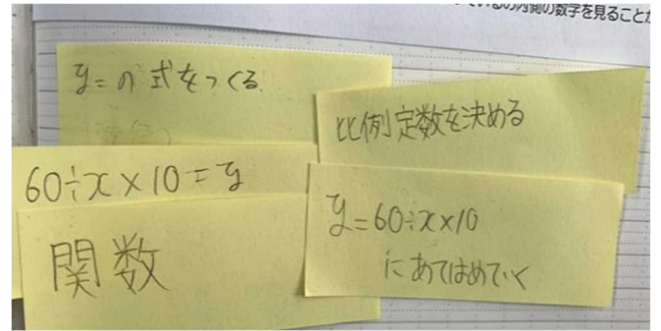 いるの内側の数字を見ることが
y=の式をつくる
比例定数を決める
60÷x×10=y
y=60÷x×10
にあてはめていく
関数